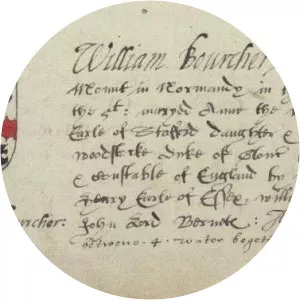 William Bourcher
Mount in Normandy in
the 5t: maryed Anne the
Earle of Stafford daughter
woodstocke duke of Glouc
Constable of England by
Henry Earle of Essex, will
rcher: John Lord Bernete:
betwene 4 water boget